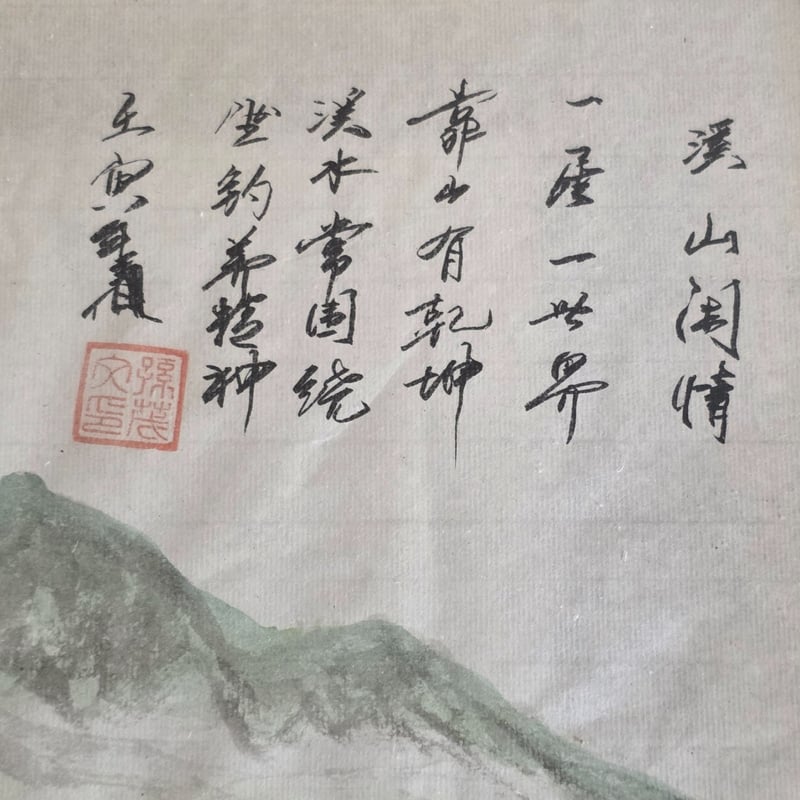 溪山闲情
一居一世界
靠山有乾坤
溪水常围绕
垂钓养精神
壬寅春
孫茂
文印